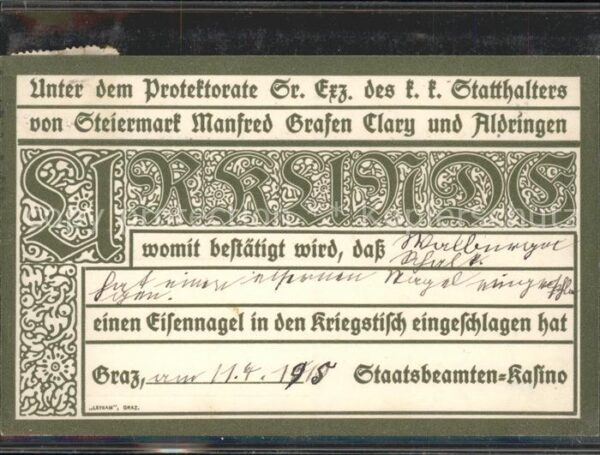 Unter dem Protektorate Sr. Exz. des k. k. Statthalters
von Steiermark Manfred Grafen Clary und Aldringen
URKUNDE
womit bestätigt wird, daß Walburga
Schalk
hat einen eisernen Nagel eingeschla
gen.
einen Eisennagel in den Kriegstisch eingeschlagen hat
Graz, am 11.4.1915 Staatsbeamten-Kasino
„LEYKAM“, GRAZ.